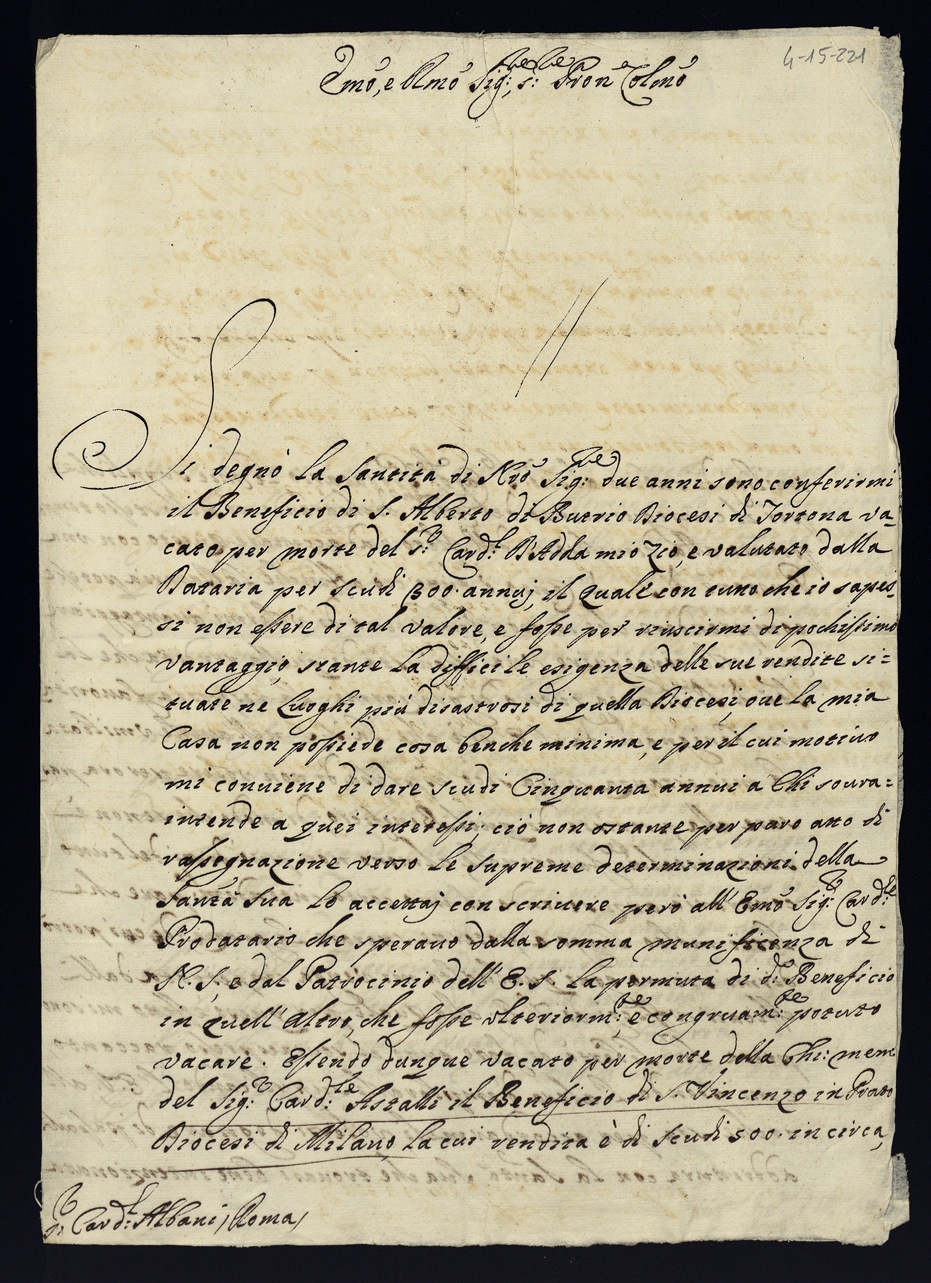 4-15-221
Emo, e Rmo Sig:re, s: Pron Colmo
Si degnò la Santità di Nro Sig:re due anni sono conferirmi
il Beneficio di S. Alberto di Butrio Diocesi di Tortona va-
cato per morte del s:r Card:l D'Adda mio Zio, e valutato dalla
Dataria per scudi 300. annuj, il quale con tutto che io sapes-
si non essere di tal valore, e fosse per riuscirmi di pochissimo
vantaggio, stante la difficile esigenza delle sue rendite si-
tuate ne Luoghi più disastrosi di quella Diocesi, oue la mia
Casa non possiede cosa benche minima, e per il cui motiuo
mi conuiene di dare scudi Cinquanta annui a Chi soura-
intende a quei interessi. ciò non ostante per puro atto di
rassegnazione verso le supreme determinazioni della
Santà sua lo accettaj con scriuere però all'Emo Sig:r Card:le
Prodatario che sperauo dalla somma munificenza di
N. S. e dal Patrocinio dell'E. S. la permuta di d:o Beneficio
in quell'altro, che fosse vlteriorm:te e congruam:te potuto
vacare. Essendo dunque vacato per morte della Chi: mem:
del Sig:r Card:le Astalli il Beneficio di S. Vincenzo in Prato
Diocesi di Milano, la cui rendita è di scudi 500. in circa,
s:r Card:l Albani (Roma)